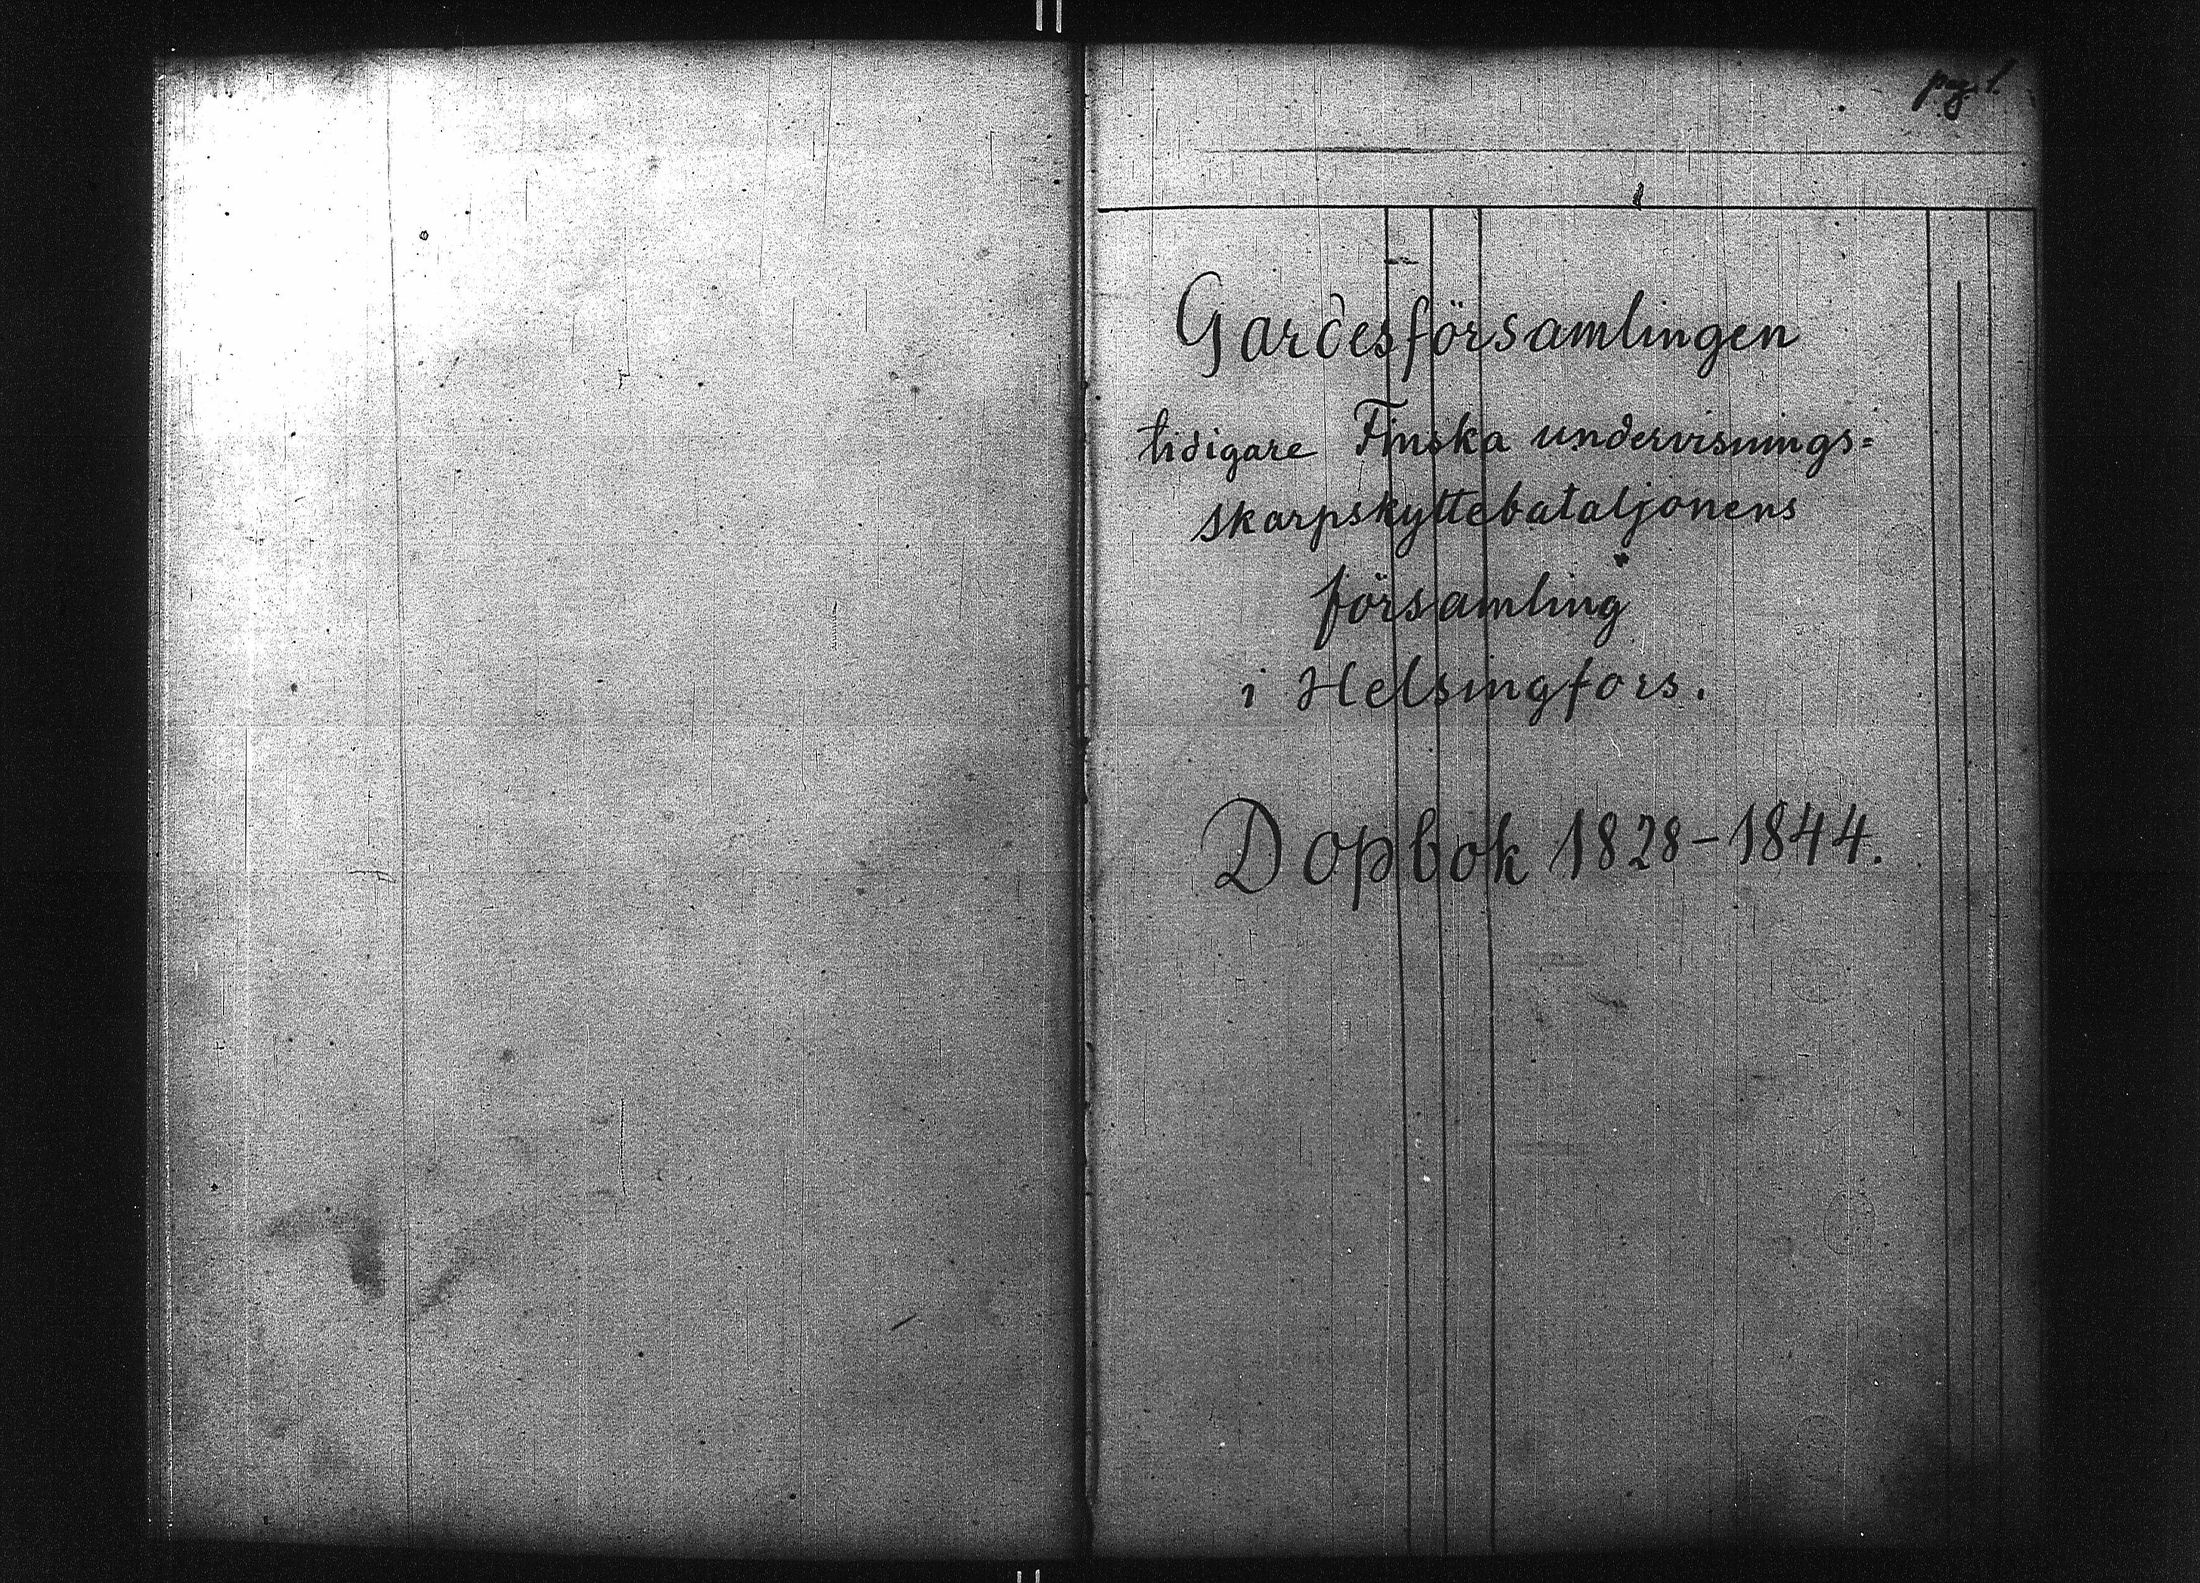 pag. 1.
Gardesförsamlingen
tidigare Finska undervisnings=
skarpskyttebataljonens
församling
i Helsingfors.
Dopbok 1828-1844.